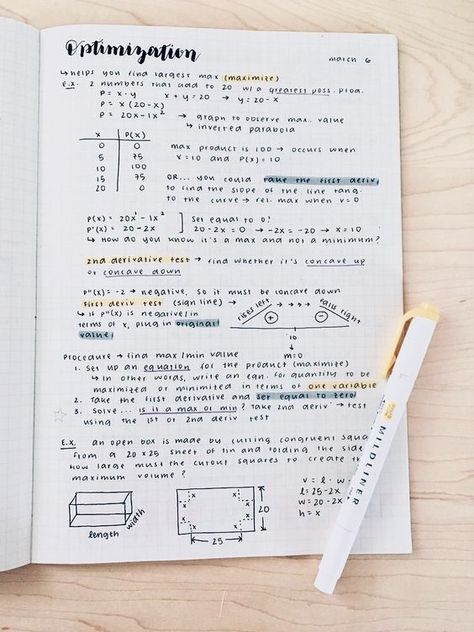 Optimization
march 6
↳ helps you find largest max (maximize)
E.X. 2 numbers that add to 20 w/ a greatest poss. prod.
P = x · y   x + y = 20 → y = 20 - x
P = x (20 - x)
P = 20x - 1x² → graph to observe max. value
↳ inverted parabola
x P(x)
0 0
5 75
10 100
15 75
20 0
max product is 100 → occurs when
x = 10 and P(x) = 10
OR... you could take the first deriv.
to find the slope of the line tang.
to the curve → rel. max when x = 0
P(x) = 20x' - 1x² ] set equal to 0!
P'(x) = 20 - 2x   20 - 2x = 0 → -2x = -20 → x = 10
↳ How do you know it's a max and not a minimum?
2nd derivative test → find whether it's concave up
or concave down
P"(x) = -2 → negative, so it must be concave down
first deriv test (sign line) →
↳ if P"(x) is negative/in
terms of x, plug in original
value
rises left
falls right
+ -
10
m=0
Procedure → find max/min value
1. Set up an equation for the product (maximize)
↳ in other words, write an eqn. for quantity to be
maximized or minimized in terms of one variable
2. Take the first derivative and set equal to zero!
3. Solve ... is it a max or min? Take 2nd deriv → test
using the 1st or 2nd deriv test
E.X. an open box is made by cutting congruent
from a 20 x 25 sheet of tin and folding the
how large must the cutout squares to create
maximum volume?
length
width
x x
x x
x x
x x
20
25
v = l · w
l = 25 - 2x
w = 20 - 2x
h = x
MILDLINER